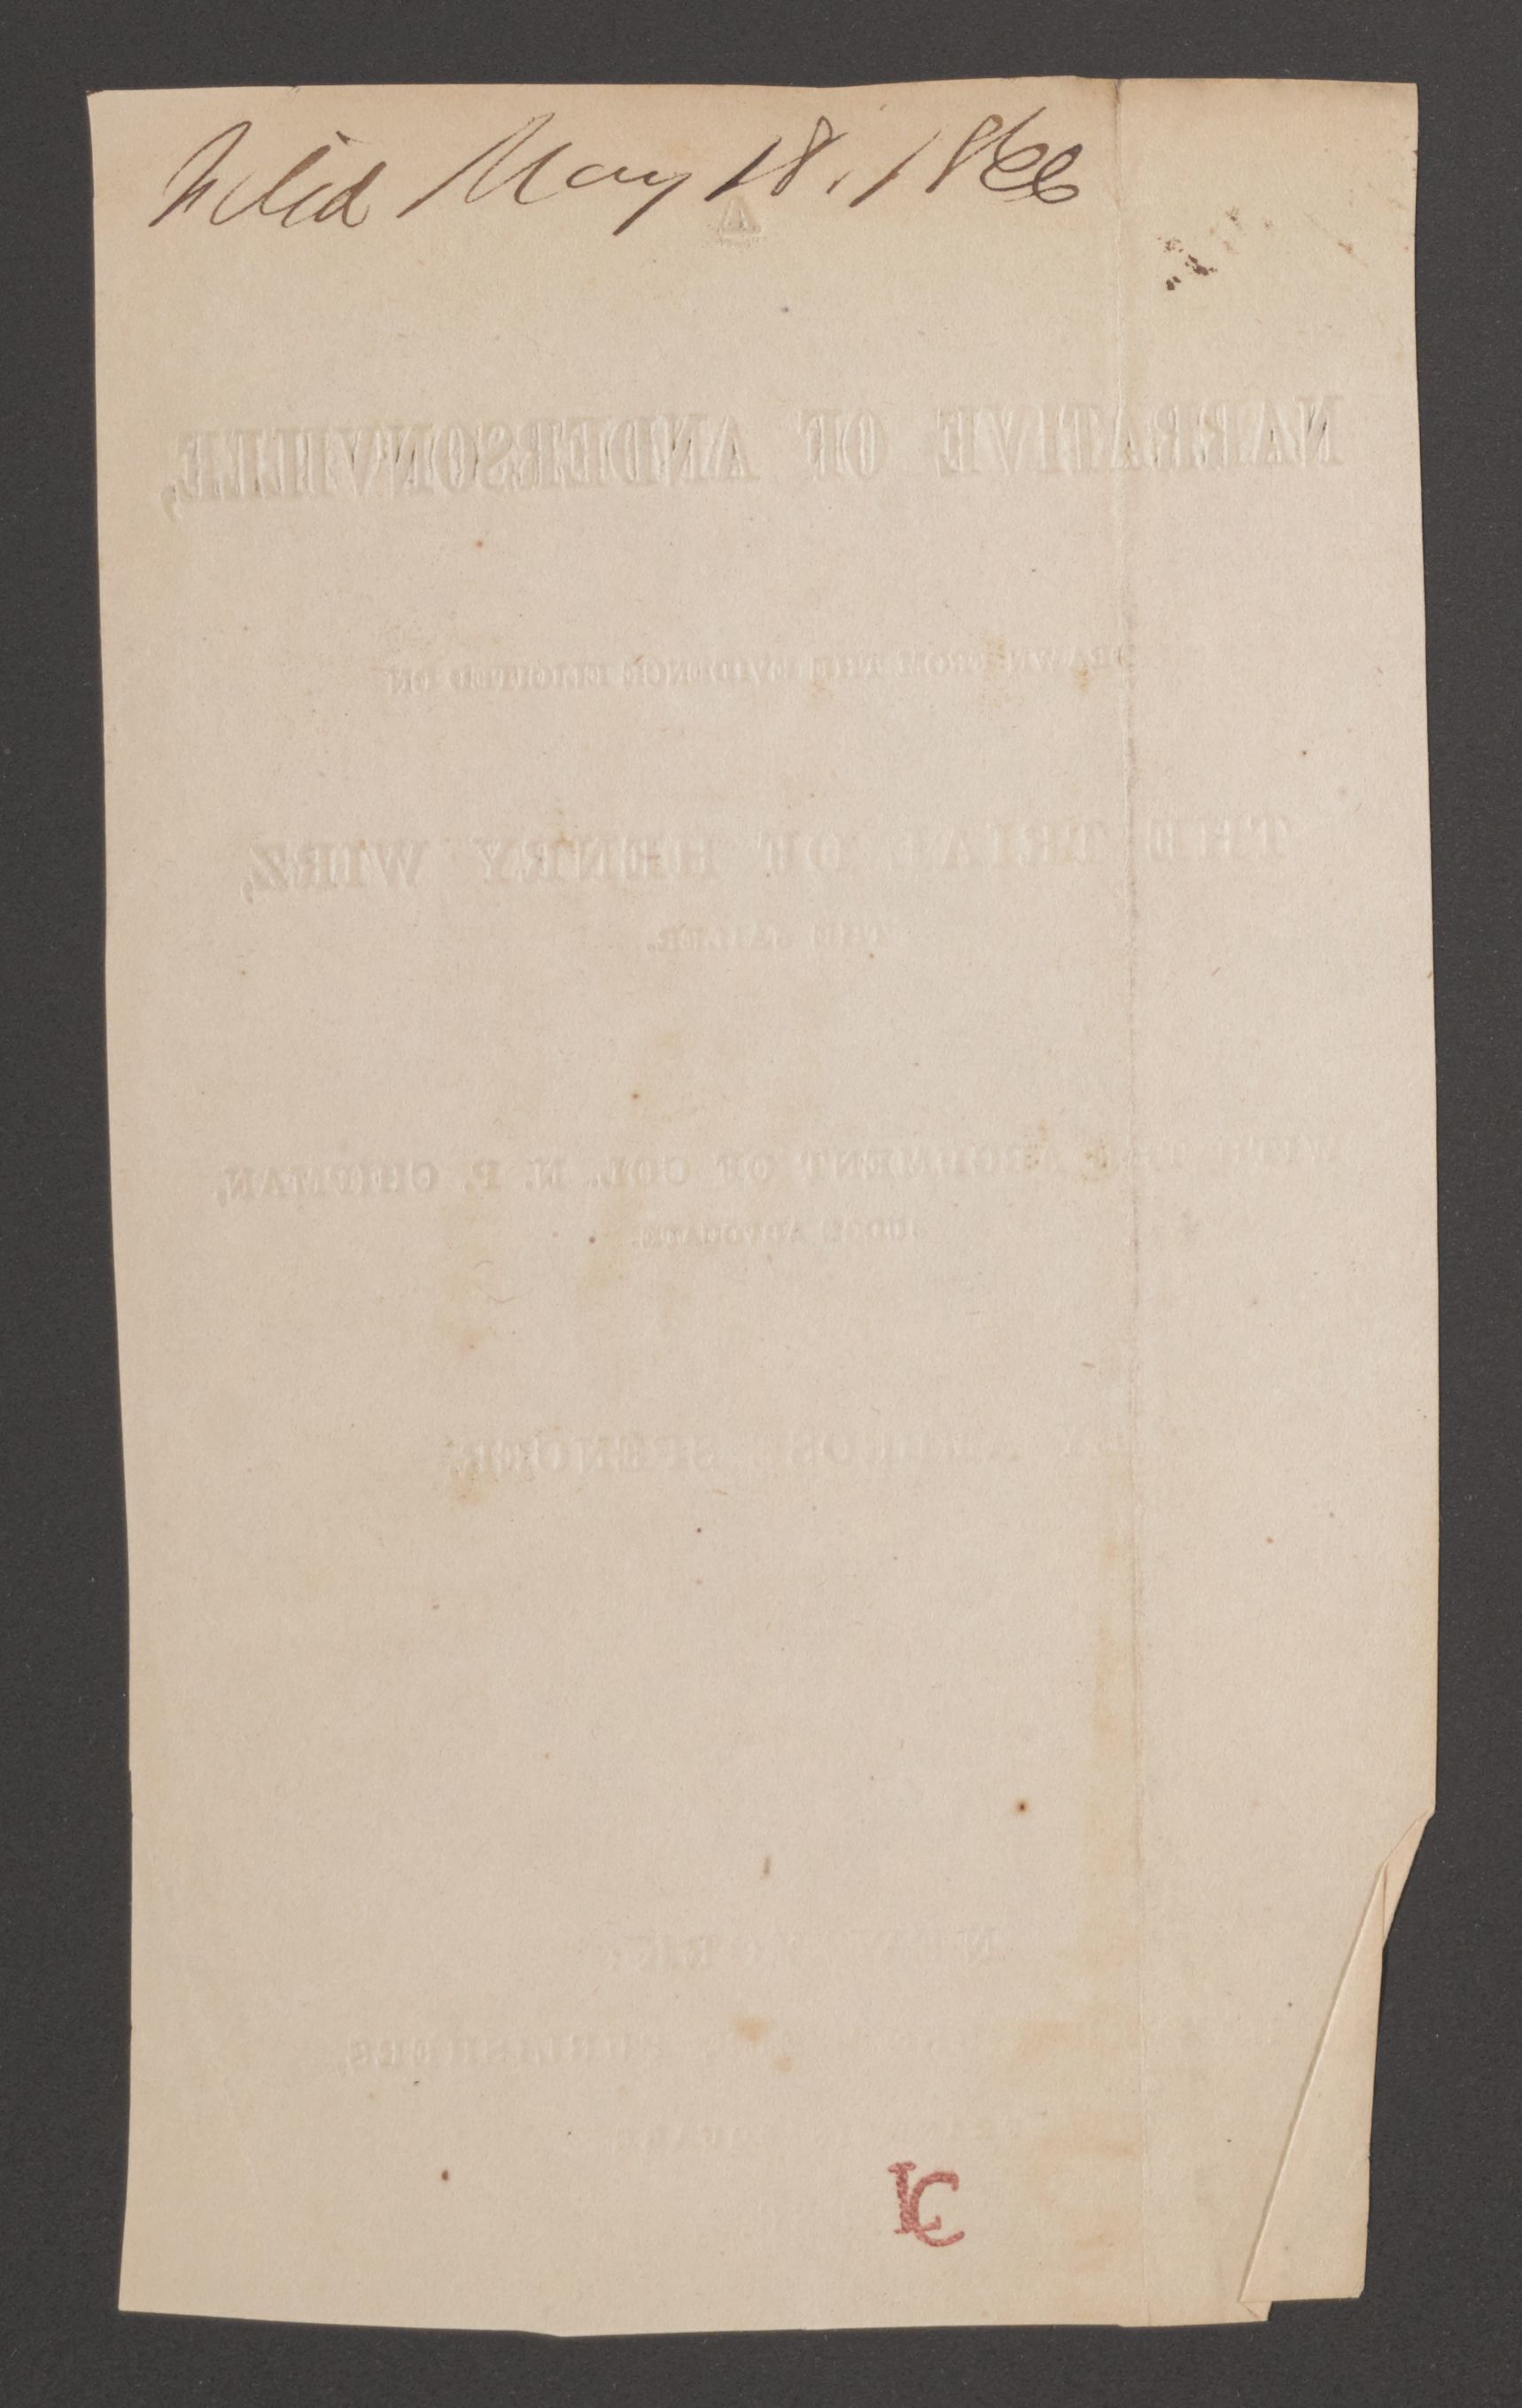 Filed May 18. 1866
A
NARRATIVE OF ANDERSONVILLE,
DRAWN FROM THE EVIDENCE ELICITED ON
THE TRIAL OF HENRY WIRZ,
THE JAILER.
WITH THE ARGUMENT OF COL. N. P. CHIPMAN,
JUDGE ADVOCATE.
BY AMBROSE SPENCER.
NEW YORK:
PUBLISHERS,
SQUARE.
LC